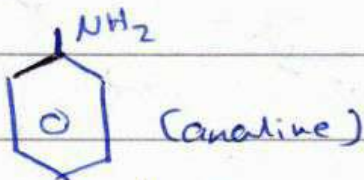 NH2
(analine)